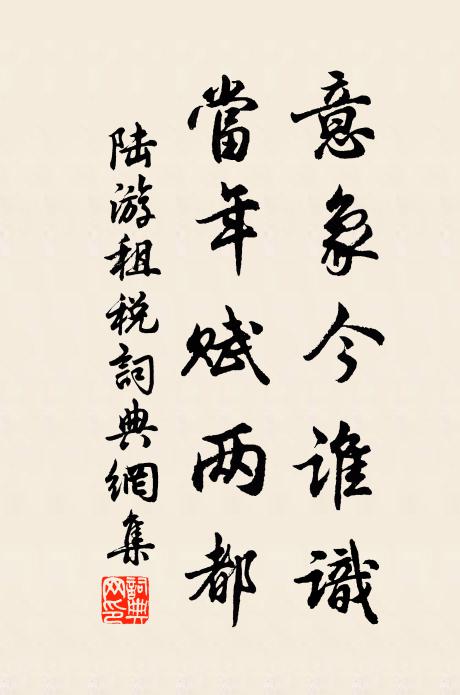 意象今谁識
當年赋两都
陆游租税詞典網集
詞典网印